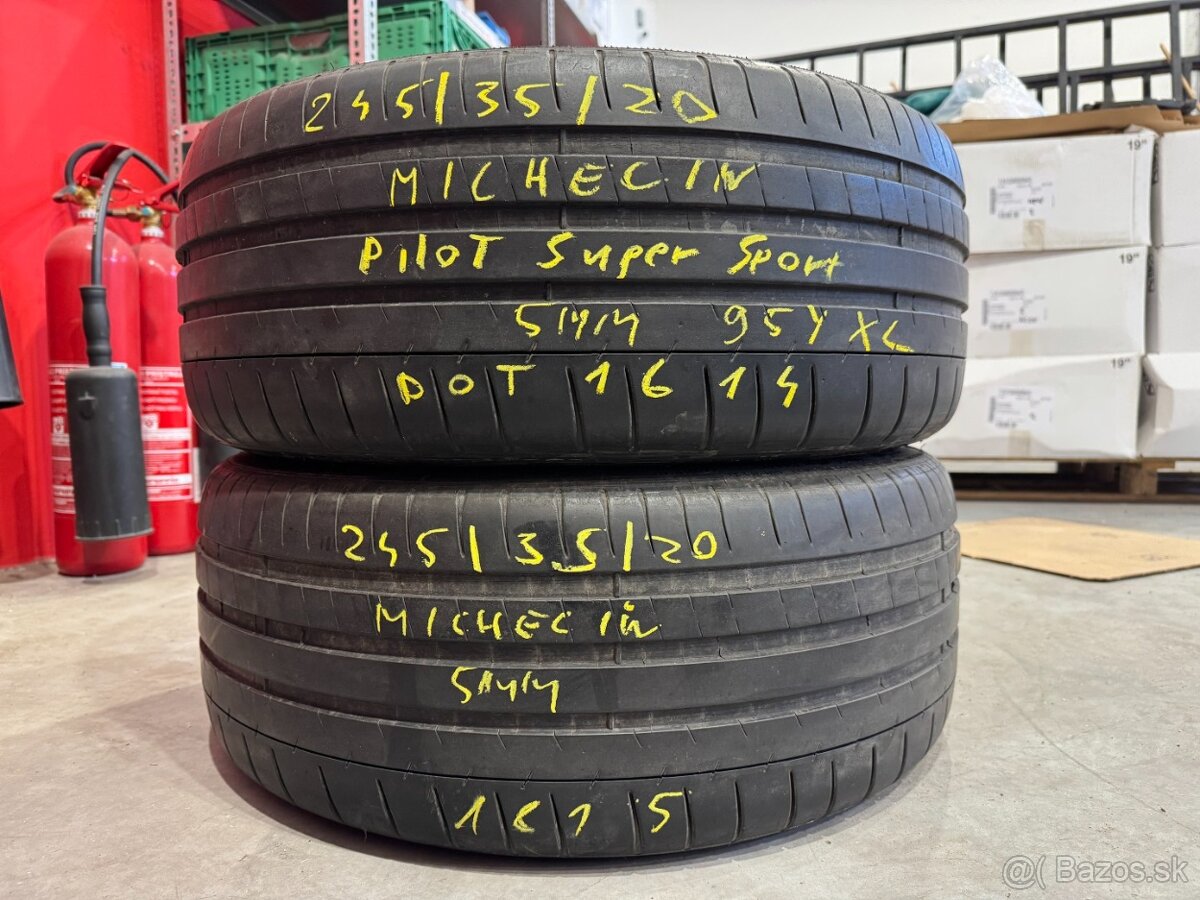 245/35/20
MICHELIN
PiloT Super Sport
5MM 95Y XL
DOT 1614
245/35/20
MICHELIN
5MM
1615
19"
19"
19"
@( Bazos.sk